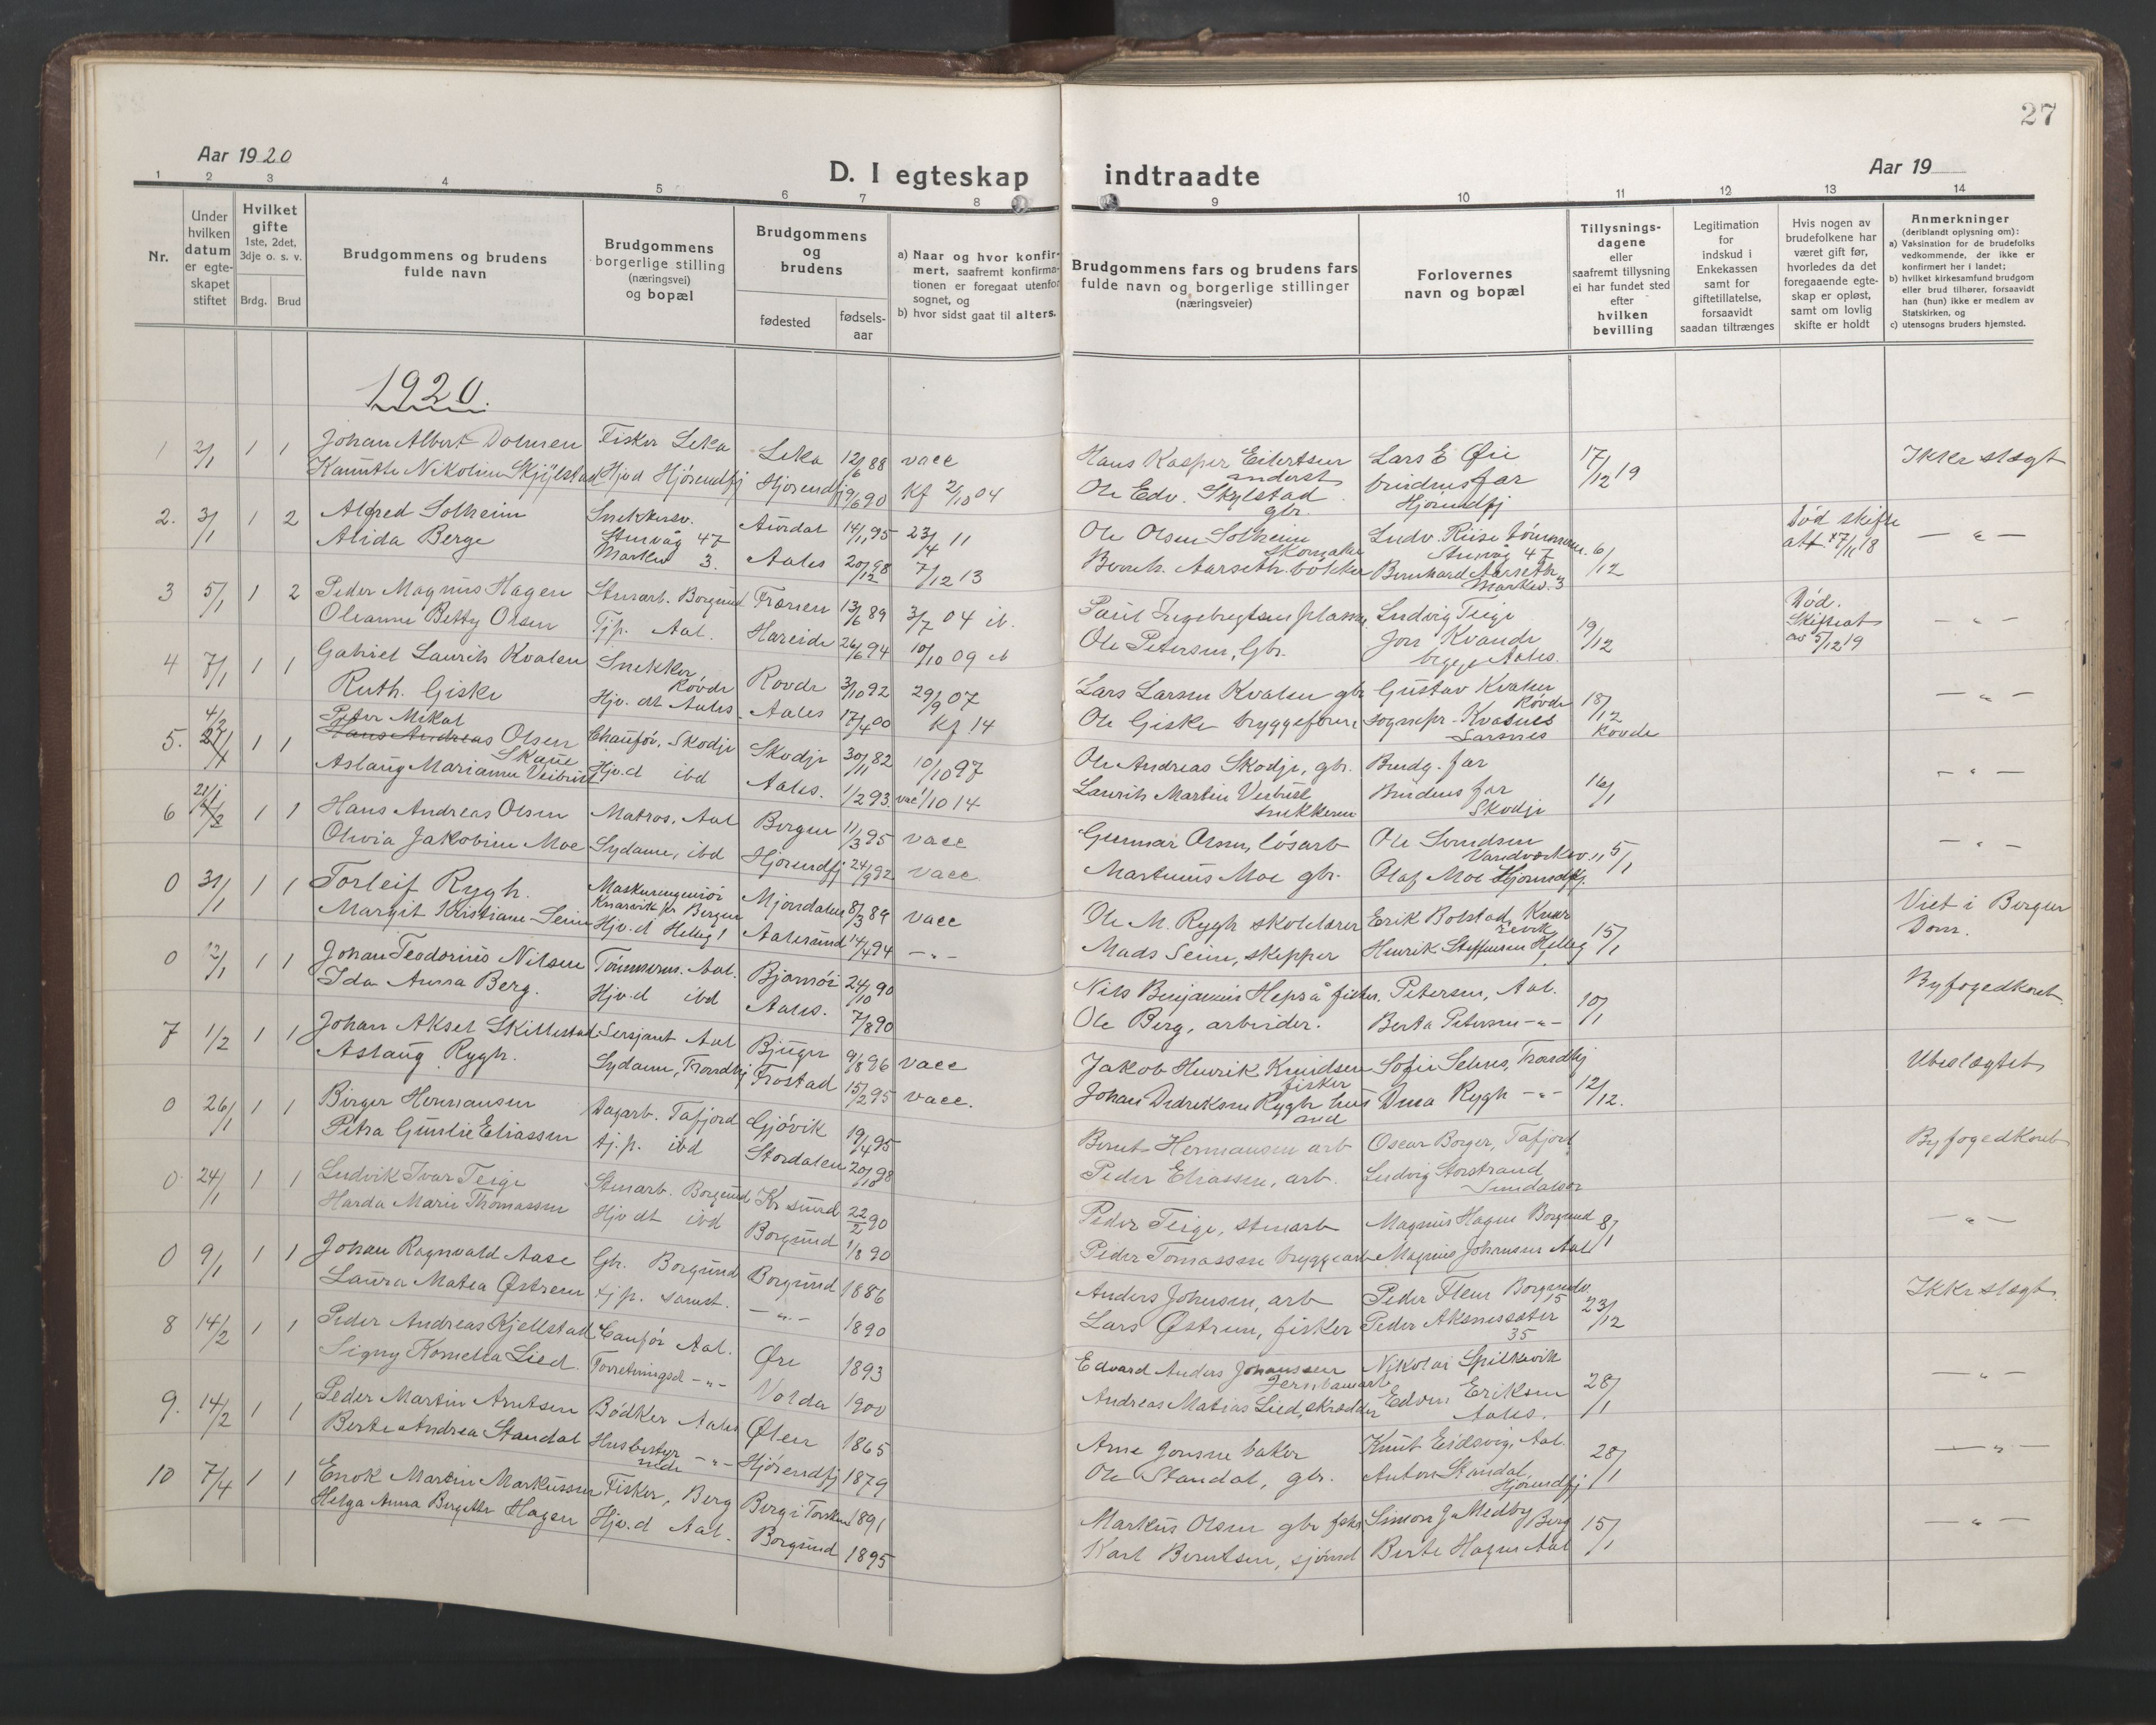 27
Aar 1920
D. I egteskap indtraadte
Aar 19
1 2 3 4 5 6 7 8 9 10 11 12 13 14
Nr.
Under hvilken datum er egteskapet stiftet
Hvilket gifte 1ste, 2det, 3dje o. s. v.
Brdg. Brud
Brudgommens og brudens fulde navn
Brudgommens borgerlige stilling (næringsvei) og bopæl
Brudgommens og brudens
fødested
fødsels-aar
a) Naar og hvor konfirmert, saafremt konfirmationen er foregaat utenfor sognet, og
b) hvor sidst gaat til alters.
Brudgommens fars og brudens fars fulde navn og borgerlige stillinger (næringsveier)
Forlovernes navn og bopæl
Tillysningsdagene eller saafremt tillysning ei har fundet sted efter hvilken bevilling
Legitimation for indskud i Enkekassen samt for giftetillatelse, forsaavidt saadan tiltrænges
Hvis nogen av brudefolkene har været gift før, hvorledes da det foregaaende egteskap er opløst, samt om lovlig skifte er holdt
Anmerkninger (deriblandt oplysning om):
a) Vaksination for de brudefolks vedkommende, der ikke er konfirmert her i landet;
b) hvilket kirkesamfund brudgom eller brud tilhører, forsaavidt han (hun) ikke er medlem av Statskirken, og
c) utensogns bruders hjemsted.
1920.
1 2/1 1 1 Johan Albert Dolmen Fisker Leka Leka 12/6 88 vacc Hans Kasper Eilertsen Lars E Øie 17/12 19 Ikke slegt
Hjv.d Hjørendfj Hjørendfj 9/6 90 Kf 2/10 04 Ole Edv. Skylstad gbr. brudens far Hjørundfj
2. 3/1 1 2 Alfred Solheim Snekkersv. Stenvåg 47 Aurdal 14/1 95 23/4 11 Ole Olsen Solheim Skomaker Ludv. Riise Stenvåg 47 6/12 Død skifte att. 17/11 18 — " —
Alida Berge Marken 3. Aales 20/12 98 7/12 13 Bernh. Aarseth bøkker Bernhard Aarseth Markv. 3
3 5/1 1 2 Peder Magnus Hagen Stenarb. Borgund Frænen 13/6 89 3/7 04 ib. Ludvig Teige 19/12 Død. Skifteat av 5/12 19 — " —
Oleanne Betty Olsen Tjp. Aal. Hareide 26/6 94 10/10 09 ib Ole Petersen, Gbr. Jon Kvande begge Aales.
4 7/1 1 1 Gabriel Laurits Kvalen Snekker, Rovde Rovde 3/10 92 29/9 07 Lars Larsen Kvalen gbr Gustav Kvalen Rovde 18/12 Rovde — " —
Ruth. Giske Hjv. dt Aales Aales 17/4 00 Kf 14 Ole Giske bryggeform sognepr. Kvasnes Larsnes
5. 4/2 1 1 Peter Mikal Olsen Skaue Chaufør, Skodje Skodje 30/11 82 10/10 97 Ole Andreas Skodje, gbr. Brudg. far 16/1 — " —
Aslaug Marianne Veibust Hjv.d ibd Aales. 1/2 93 vac 1/10 14 Laurits Martin Veibust snekkerm Brudens far Skodje
6 21/1 1 1 Hans Andreas Olsen Matros, Aal Bergen 11/3 95 vacc Gunnar Olsen, løsarb Ole Svendsen 15/1 — " —
Olivia Jakobine Moe Sydame, ibd Hjørendfj 24/9 92 vacc Martinus Moe gbr. Olaf Moe Hjørundfj.
0 31/1 1 1 Torleif Rygh. Maskiningeniør Knarvik pr Bergen Mjøndalen 8/3 89 vacc Ole M. Rygh skolelærer Erik Bolstad, Knarrevik 15/1 Viet i Bergen Dom.
Margit Kristiane Seim Hjv.d Helleg 1 Aalesund 14/4 94 — " — Mads Seim, skipper Henrik Steffensen Helleg
0 12/1 1 1 Johan Teodorius Nilsen Tømmerm. Aal. Bjarnøi 24/10 90 Nils Benjamin Hepsø fisker, Petersen, Aal. 10/1 Byfogedkont.
Ida Anna Berg. Hjv.d ibd Aales. 7/8 90 Ole Berg, arbeider. Berta Petersen — " —
7 1/2 1 1 Johan Aksel Skillestad Sersjant Aal Bjugn 9/8 96 vacc Jakob Henrik Knudsen fisker Sofie Selnes, Trondhj 12/12. Ubeslægtet
Aslaug Rygh. Sydame, Trondhj Frostad 15/2 95 vacc. Johan Didriksen Rygh husmand Dina Rygh — " —
0 26/1 1 1 Birger Hermansen Dagarb. Tafjord Gjøvik 19/4 95 Bernt Hermansen arb Oscar Borger, Tafjord Byfogedkont
Petra Gunlie Eliassen tj.p. ibd Stordalen 20/10 98 Peder Eliassen, arb. Ludvig Storstrand Sundalsør
0. 24/1 1 1 Ludvik Ivar Teige Stenarb. Borgund Kr sund 22/2 90 Peder Teige, stenarb Magnus Hagen Borgund 8/1 — " —
Harda Marie Thomassen Hjv dt ibd Borgund 1/8 90 Peder Tomassen bryggearb Magnus Johansen Aal
0 9/1 1 1 Johan Ragnvald Aase Gbr. Borgund Borgund 1886 Anders Johnsen, arb Peder Flem Borgundv. 15 23/12 Ikke slegt.
Laura Matea Østrem tj p. samst. — " — 1890 Lars Østrem, fisker Peder Aksnessæter 35
8 14/2 1 1 Peder Andreas Kjellstad Caufør Aal. Øre 1893 Edvard Anders Johanssen Jernbanearb Nikolai Spilkevik 28/1 — " —
Signy Kornelia Lied. Forretningsd — " — Volda 1900 Andreas Matias Lied, skrædder Edvin Eriksen Aales.
9. 14/2 1 1 Peder Martin Arntsen Bødker Aales Ølen 1865 Arne Jonsen baker Knut Eidsvig, Aal. 28/1 — " —
Berte Andrea Standal Husbestyrinde — " — Hjørendfj 1879 Ole Standal, gbr. Anton Standal, Hjørundfj
10 7/4 1 1 Enok Martin Markussen Fisker, Berg Berg i Torsken 1891 Markus Olsen gbr fisker Simon J Medby Berg 15/1 — " —
Helga Anna Bergitte Hagen Hjv.d Aal. Borgund 1895 Karl Berntsen, sjømd Berte Hagen Aal